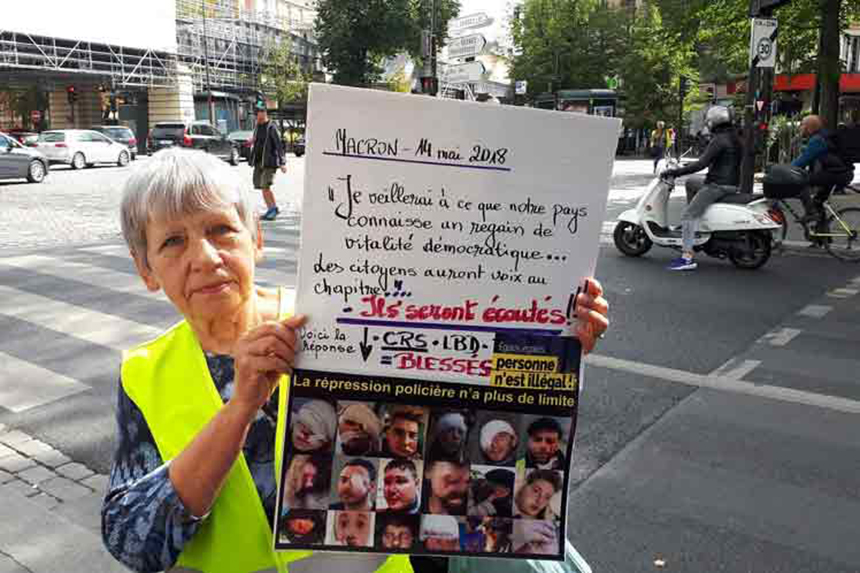 MACRON - 14 mai 2018
"Je veillerai à ce que notre pays
connaisse un regain de
vitalité démocratique...
Les citoyens auront voix au
chapitre..."
- Ils seront écoutés !!
Voici la
réponse
CRS - LBD
= BLESSÉS
personne
n'est illégal !
La répression policière n'a plus de limite
30